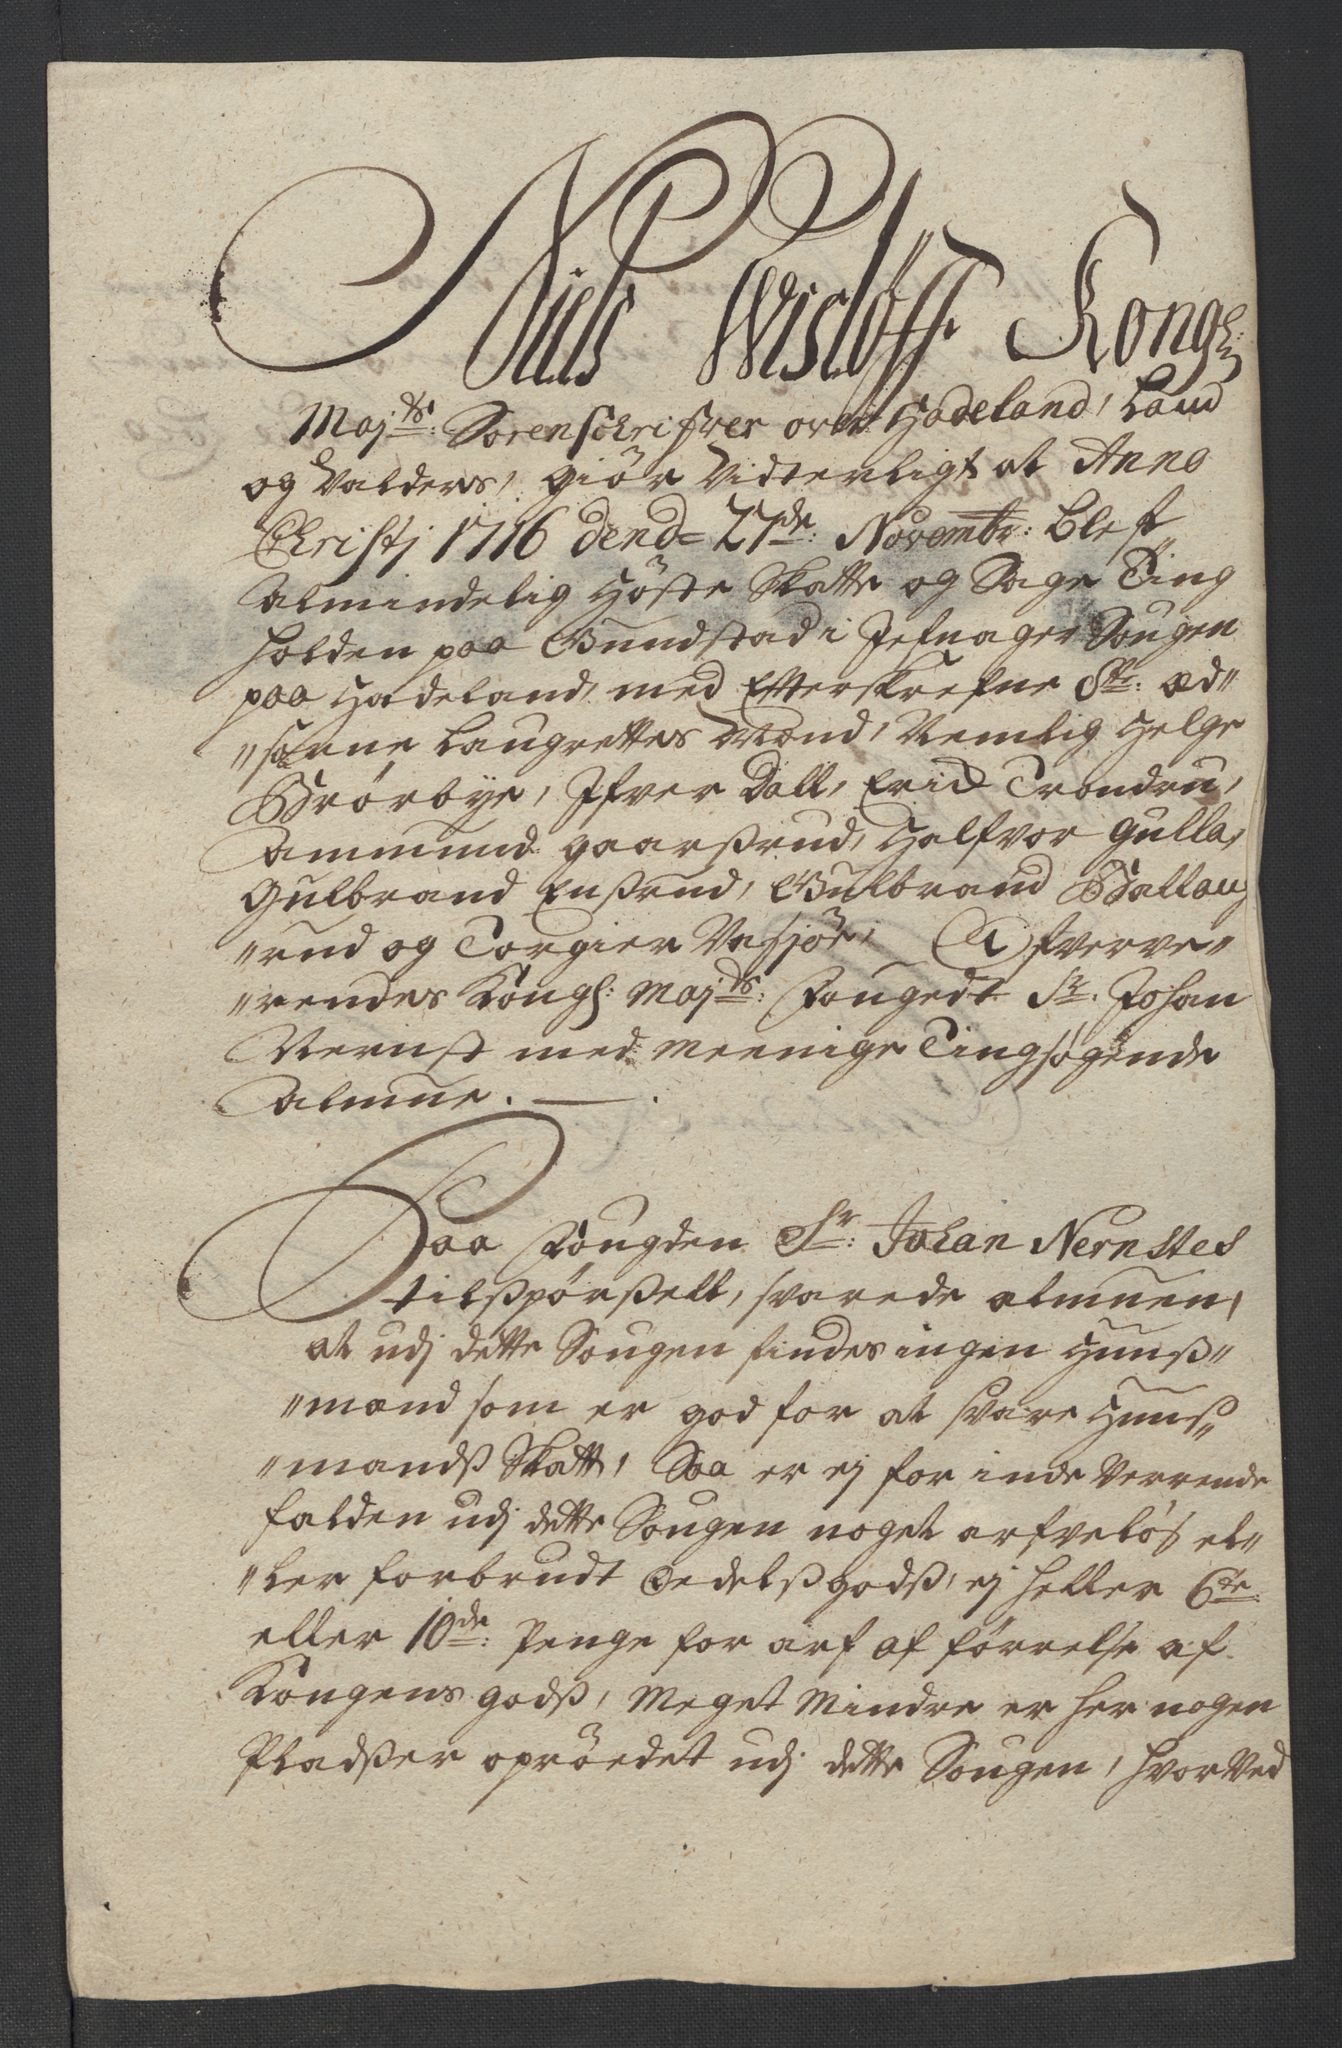 Niels Wislöff Kongl:
Maj:ds: Sorenschrifver over Hadeland, Land
og Valders, giör Vidterligt at Anno
Christj 1716 dend= 27de: Novembr: blef
Almindelig Höste Skatte og Sage Ting
holden paa Gundstad i Jefnager Sougen
paa Hadeland, med Efterskrefne Sbr: æd"
"sorne Laugrettes Mænd, Nemlig Helge
Brörbye, Ifver Dall, Erich Trondru,
Ammund gaarßrud, Halfvor gulla,
Gulbrand Enßrud, Gulbrand Ballang
"rud og Torgier Vasjöe, Ofverve"
"rendes Kongl: Maj:ds: Fougedt Sr. Johan
Nernst med meenige Tingsøgende
Almue. —— .
Paa Fougden Sr: Johan Nernstes
tilßpörßell, svarede almuen,
at udj dette Sougen findes ingen Huuß"
"mænd som er god for at svare Huus"
"mandß Skatt, Saa er ej for inde Verrende
falden udj dette Sougen noget arfvelös el"
"ler forbrudt Oedelßgodß, ej heller 6te:
eller 10de: Penge for arf af förrelse af
Kongens godß, Meget Mindre er her nogen
Pladßer oprödet udj dette Sougen, hvorved